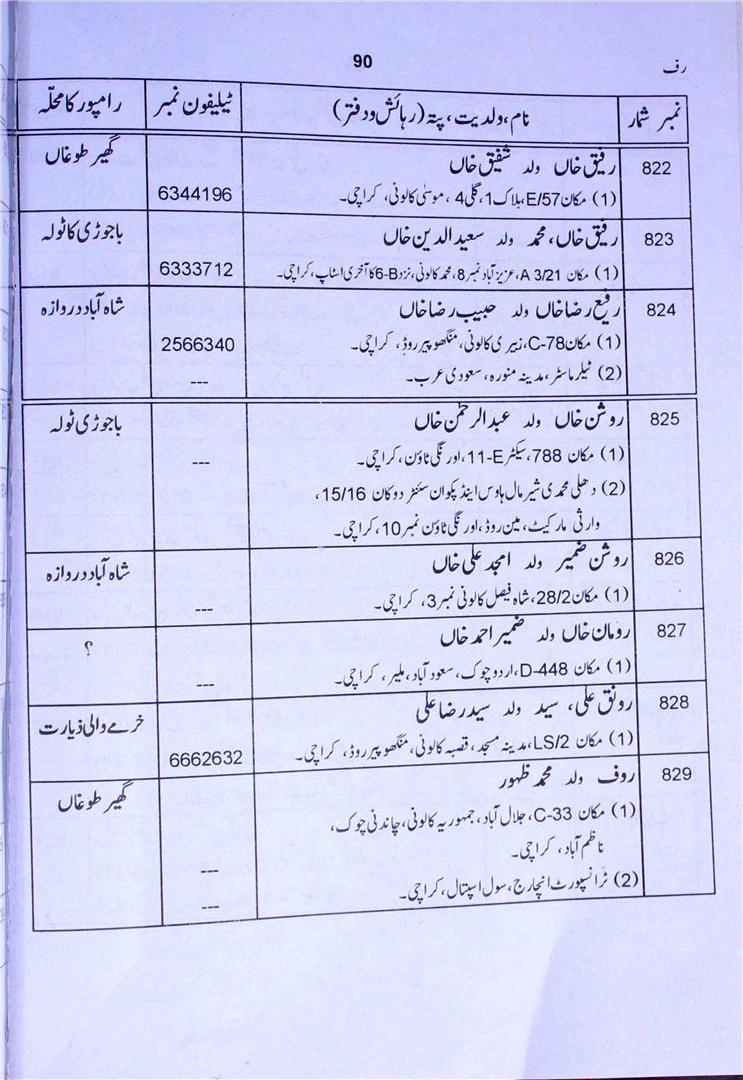 رف
90
نمبر شمار
نام، ولدیت، پتہ (رہائش و دفتر)
ٹیلیفون نمبر
رامپور کا محلّہ
822
رفیق خاں ولد شفیق خاں
گھیر طوغاں
(1) مکان E/57، بلاک 1، گلی 4، موسیٰ کالونی، کراچی۔
6344196
823
رفیق خاں، محمد ولد سعید الدین خاں
باجوڑی کا ٹولہ
(1) مکان A 3/21، عزیز آباد نمبر 8، محمد کالونی، نزد 6-B کا آخری اسٹاپ، کراچی۔
6333712
824
رفیع رضا خاں ولد حبیب رضا خاں
شاہ آباد دروازہ
(1) مکان C-78، زبیری کالونی، منگھوپیر روڈ، کراچی۔
2566340
(2) ٹیلر ماسٹر، مدینہ منورہ، سعودی عرب۔
---
825
روشن خاں ولد عبدالرحمٰن خاں
باجوڑی ٹولہ
(1) مکان 788، سیکٹر 11-E، اورنگی ٹاون، کراچی۔
---
(2) دھلی محمدی شیرمال ہاوس اینڈ پکوان سنٹر دوکان 15/16،
وارثی مارکیٹ، مین روڈ، اورنگی ٹاؤن نمبر 10، کراچی۔
826
روشن ضمیر ولد امجد علی خاں
شاہ آباد دروازہ
(1) مکان 28/2، شاہ فیصل کالونی نمبر 3، کراچی۔
---
827
رومان خاں ولد ضمیر احمد خاں
؟
(1) مکان D-448، اردو چوک، سعود آباد، ملیر، کراچی۔
---
828
رونق علی، سید ولد سید رضا علی
خرمے والی زیارت
(1) مکان LS/2، مدینہ مسجد، قصبہ کالونی، منگھوپیر روڈ، کراچی۔
6662632
829
روف ولد محمد ظہور
گھیر طوغاں
(1) مکان C-33، جلال آباد، جمہوریہ کالونی، چاندنی چوک،
ناظم آباد، کراچی۔
---
(2) ٹرانسپورٹ انچارج، سول اسپتال، کراچی۔
---